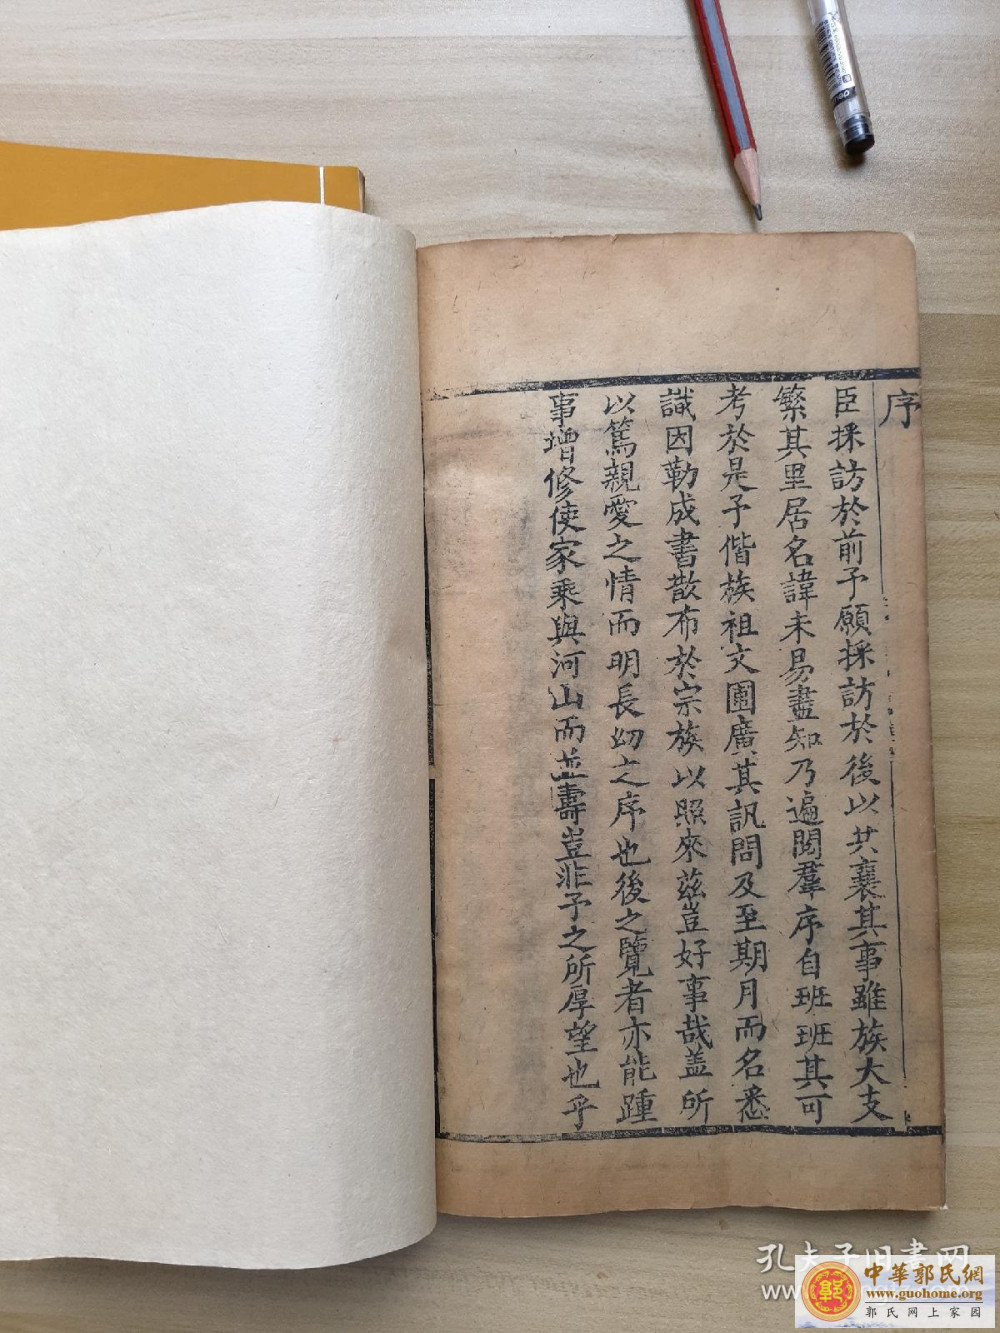 序
臣採訪於前予願採訪於後以共襄其事雖族大支
繁其里居名諱未易盡知乃遍閱羣序自班班其可
考於是予偕族祖文圃廣其訊問及至期月而名悉
識因勒成書散布於宗族以照來茲豈好事哉盖所
以篤親愛之情而明長幼之序也後之覽者亦能踵
事增修使家乘與河山而並壽豈非予之所厚望也乎
孔夫子旧书网
中華郭氏網
www.guohome.org
郭氏网上家园